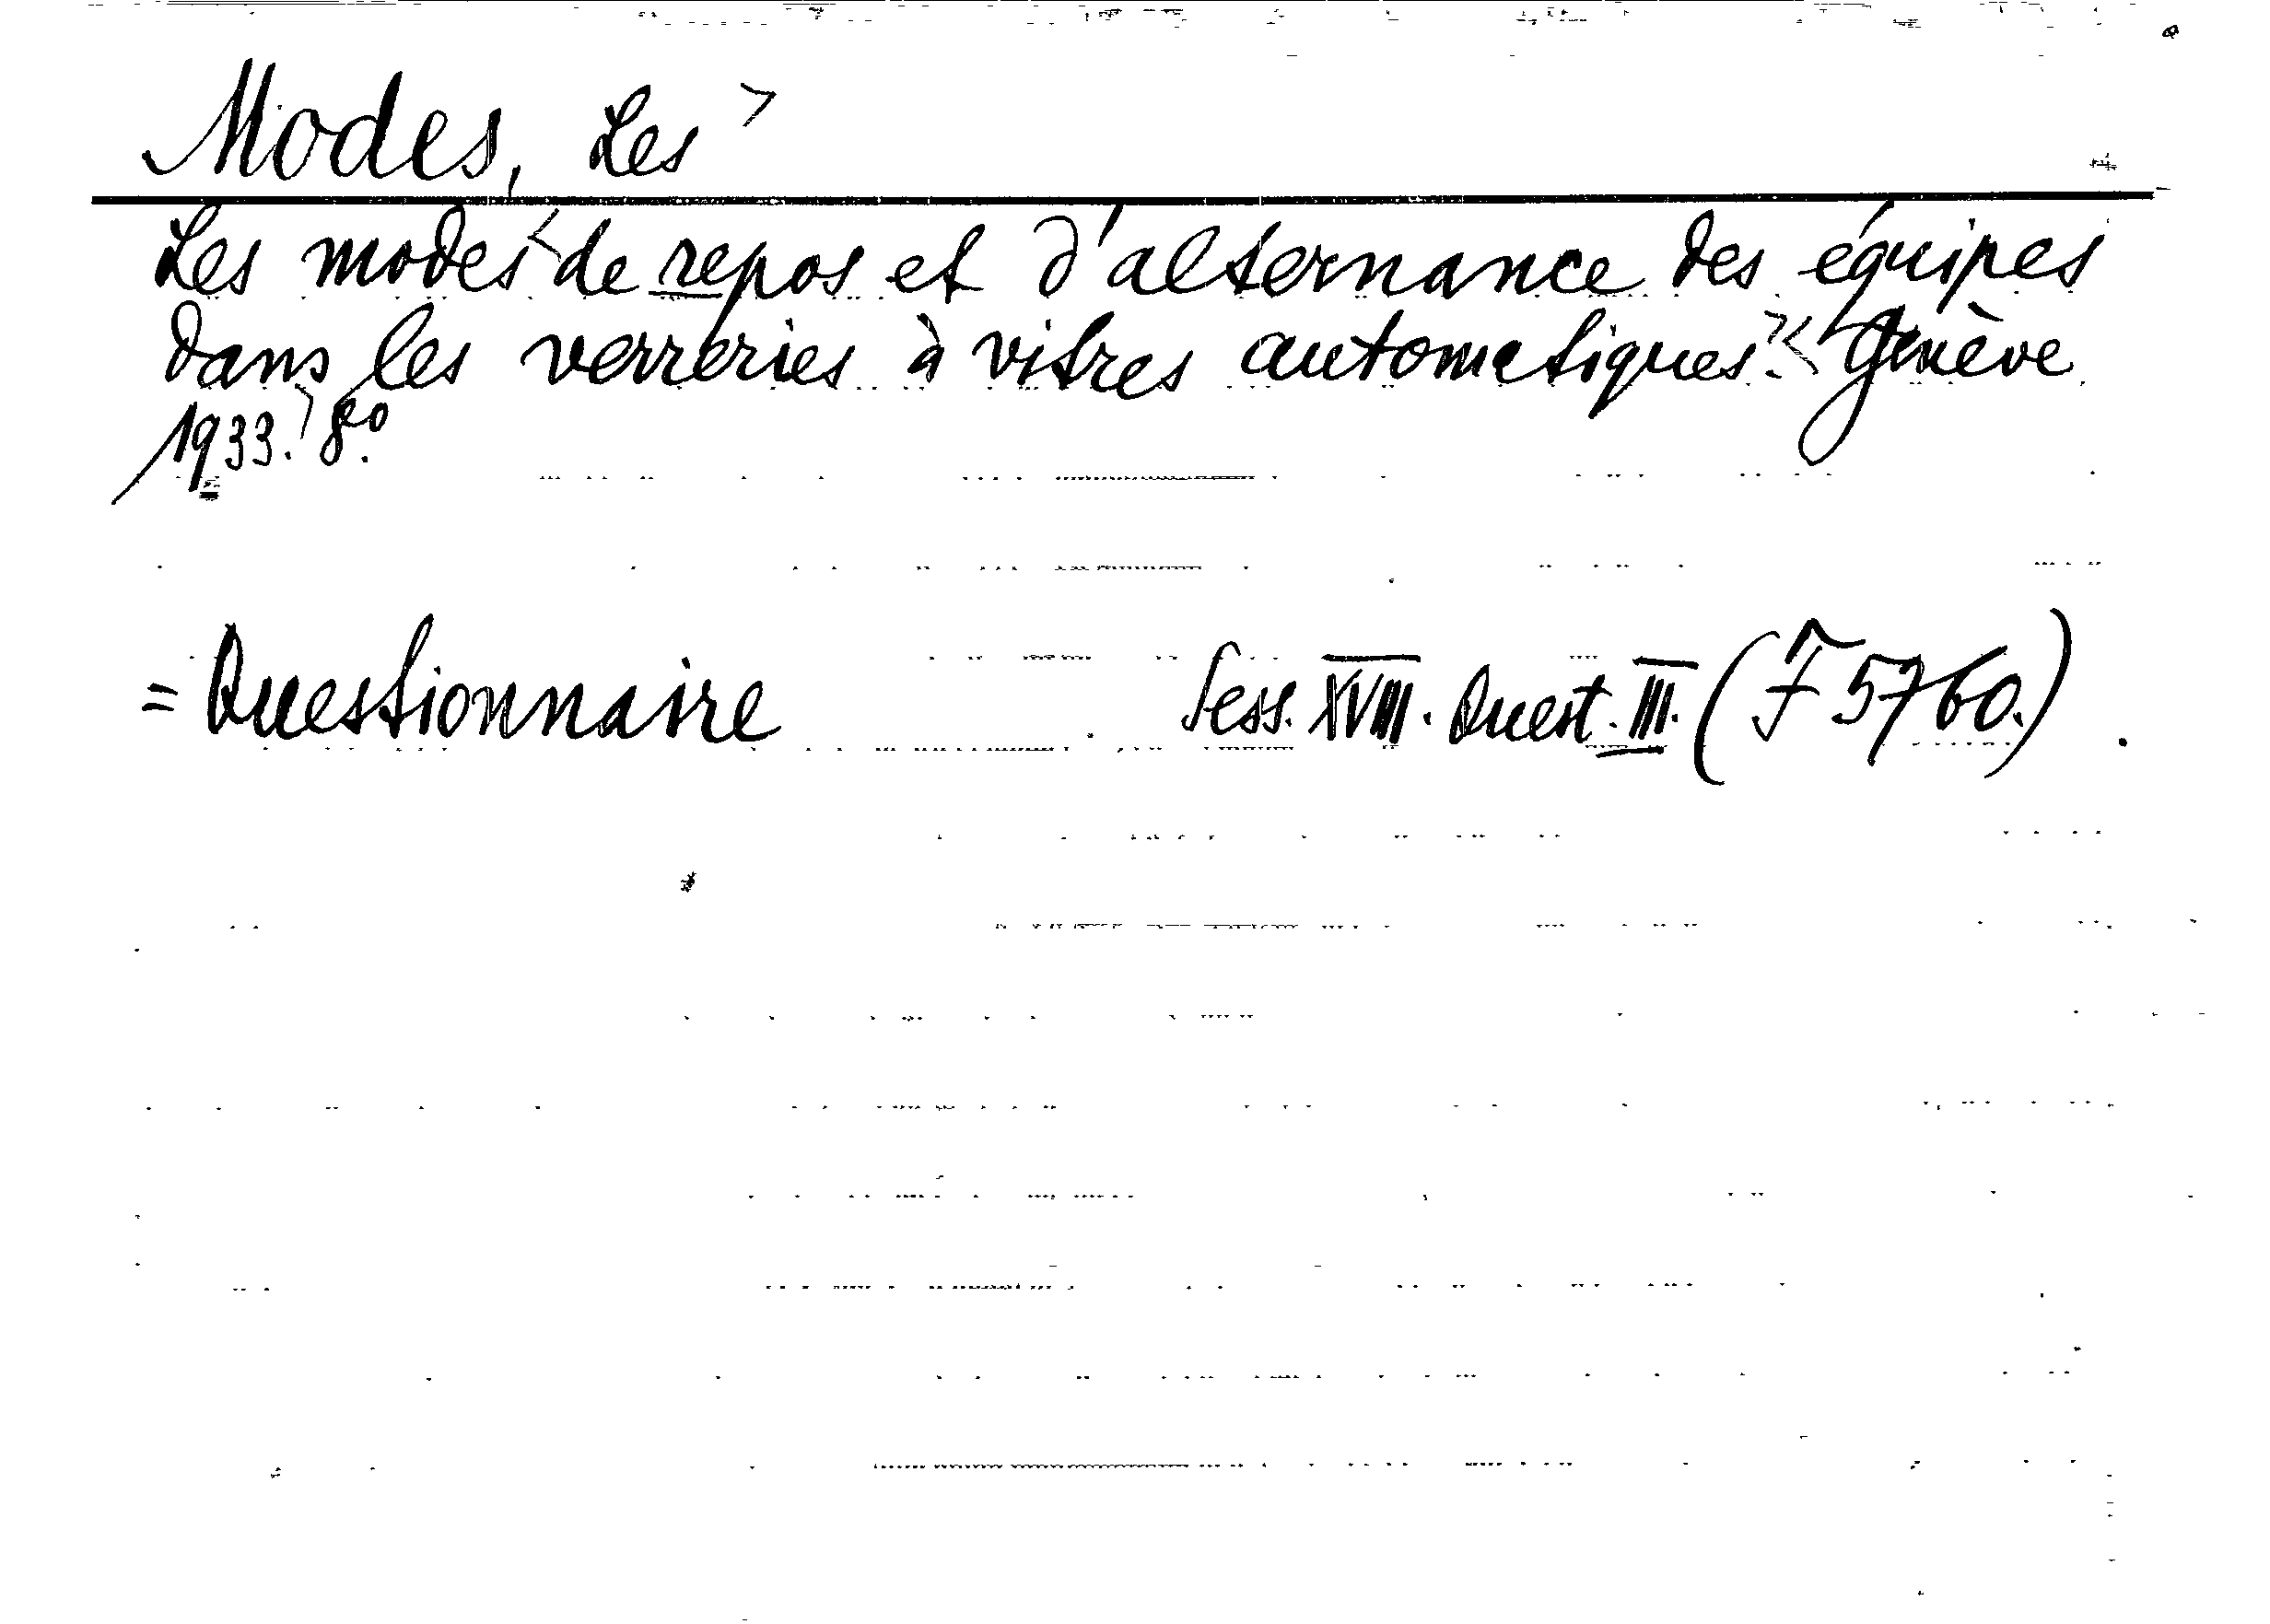 Modes, Les >
Les modes < de repos et d'alternance des équipes
dans les verreries à vitres automatiques. > < Genève
1933. > 8°.
= Questionnaire Sess. XVIII. Quest. III. (F 5760.)